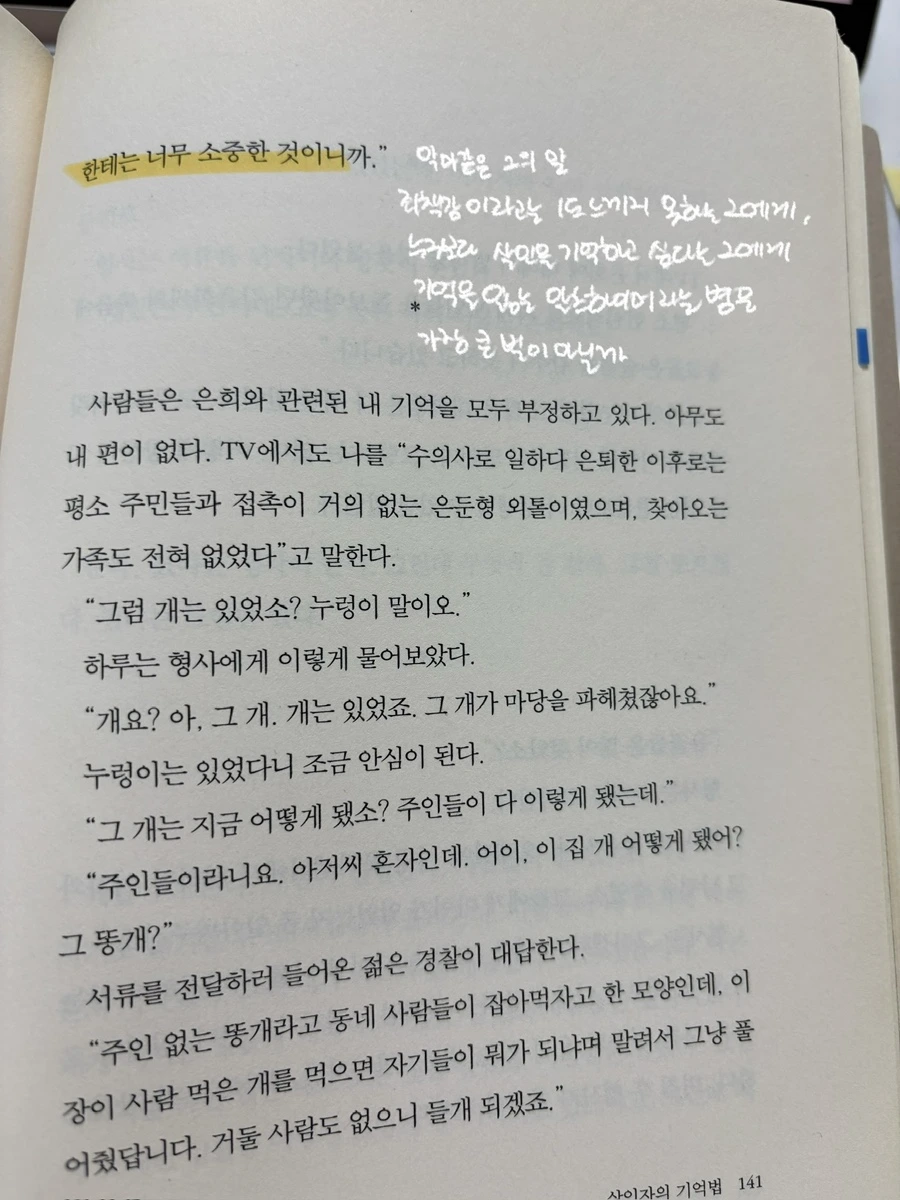 한테는 너무 소중한 것이니까.”
악마같은 그의 말
죄책감이라고는 1도 느끼지 못하는 그에게,
누구보다 살인을 기억하고 싶다는 그에게
기억을 잃는 알츠하이머라는 병은
*
가장 큰 벌이 아닐까
사람들은 은희와 관련된 내 기억을 모두 부정하고 있다. 아무도
내 편이 없다. TV에서도 나를 “수의사로 일하다 은퇴한 이후로는
평소 주민들과 접촉이 거의 없는 은둔형 외톨이였으며, 찾아오는
가족도 전혀 없었다”고 말한다.
“그럼 개는 있었소? 누렁이 말이오.”
하루는 형사에게 이렇게 물어보았다.
“개요? 아, 그 개. 개는 있었죠. 그 개가 마당을 파헤쳤잖아요.”
누렁이는 있었다니 조금 안심이 된다.
“그 개는 지금 어떻게 됐소? 주인들이 다 이렇게 됐는데.”
“주인들이라니요. 아저씨 혼자인데. 어이, 이 집 개 어떻게 됐어?
그 똥개?”
서류를 전달하러 들어온 젊은 경찰이 대답한다.
“주인 없는 똥개라고 동네 사람들이 잡아먹자고 한 모양인데, 이
장이 사람 먹은 개를 먹으면 자기들이 뭐가 되냐며 말려서 그냥 풀
어줬답니다. 거둘 사람도 없으니 들개 되겠죠.”
살인자의 기억법 141